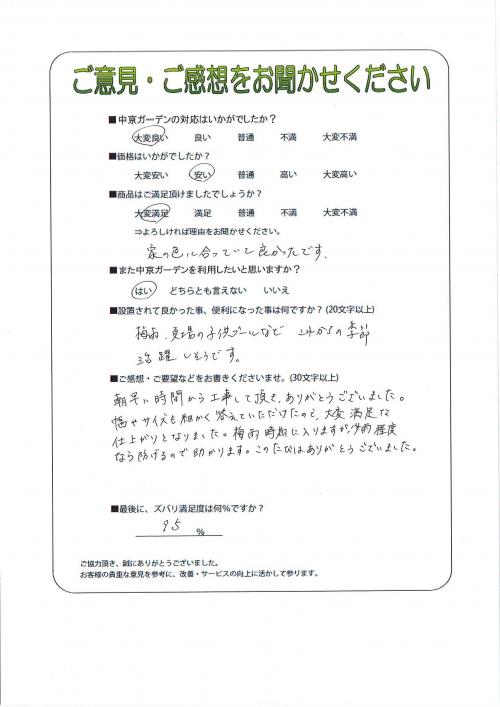 ご意見・ご感想をお聞かせください
■中京ガーデンの対応はいかがでしたか？
大変良い 良い 普通 不満 大変不満
■価格はいかがでしたか？
大変安い 安い 普通 高い 大変高い
■商品はご満足頂けましたでしょうか？
大変満足 満足 普通 不満 大変不満
⇒よろしければ理由をお聞かせください。
家の色に合っていて良かったです。
■また中京ガーデンを利用したいと思いますか？
はい どちらとも言えない いいえ
■設置されて良かった事、便利になった事は何ですか？(20文字以上)
梅雨、夏場の子供プールなど これからの季節
活躍しそうです。
■ご感想・ご要望などをお書きくださいませ。(30文字以上)
朝早い時間から工事して頂き、ありがとうございました。
幅やサイズも細かく答えていただけたので、大変満足な
仕上がりとなりました。梅雨時期に入りますが少雨程度
なら防げるので助かります。このたびはありがとうございました。
■最後に、ズバリ満足度は何％ですか？
95 ％
ご協力頂き、誠にありがとうございました。
お客様の貴重な意見を参考に、改善・サービスの向上に活かして参ります。